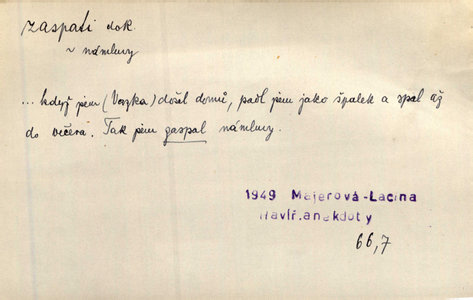 zaspati dok.
~ námluvy
... když jsem (Vozka) došel domů, padl jsem jako špalek a spal až
do večera. Tak jsem zaspal námluvy.
1949 Majerová-Lacina
Havíř.anekdoty
66,7